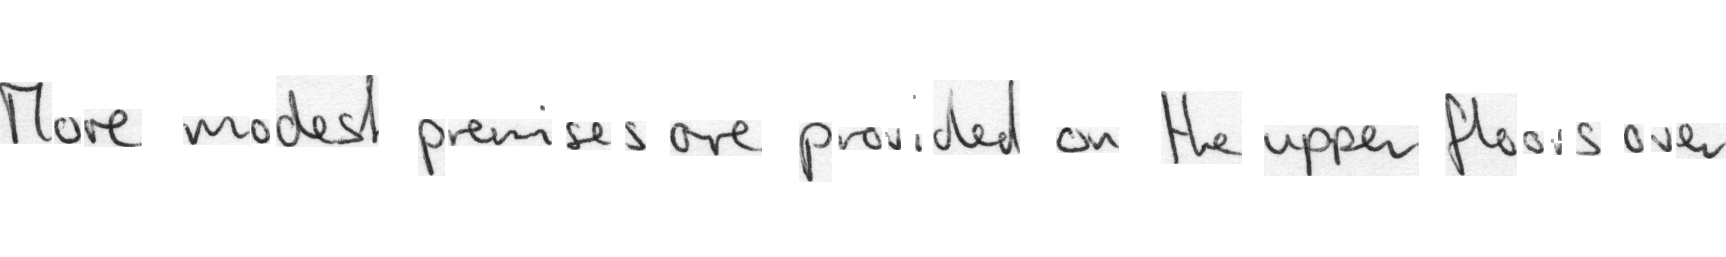 More modest premises are provided on the upper floors over